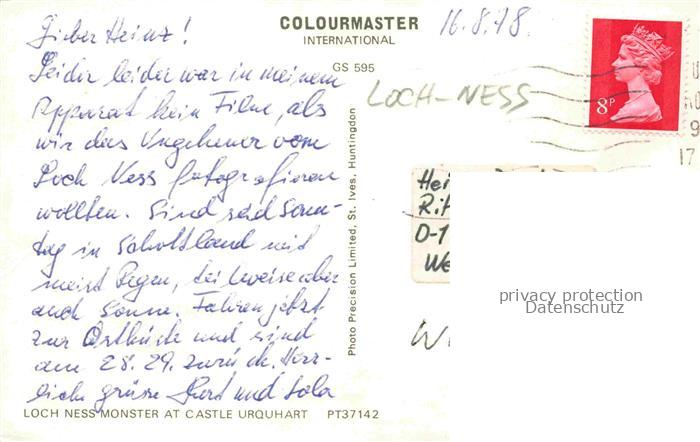 COLOURMASTER
INTERNATIONAL
GS 595
16.8.78
LOCH-NESS
8P
Lieber Heinz!
Leider leider war in meinem
Apparat kein Film, als
wir das Ungeheuer vom
Loch Ness fotografieren
wollten. Sind seid Sonn-
tag in Schottland mit
meist Regen, teilweise aber
auch Sonne. Fahren jetzt
zur Ostküste und sind
am 28. 29. zurück. Herz-
liche Grüsse Gert und Lola
Photo Precision Limited, St. Ives, Huntingdon
Hei
Rit
D-1
We
privacy protection
Datenschutz
W
17
LOCH NESS MONSTER AT CASTLE URQUHART PT37142